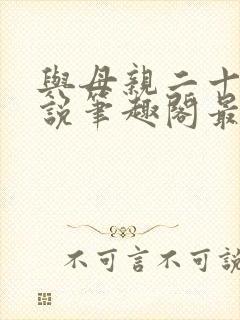 與母親二十
說筆趣閣最
不可言不可說